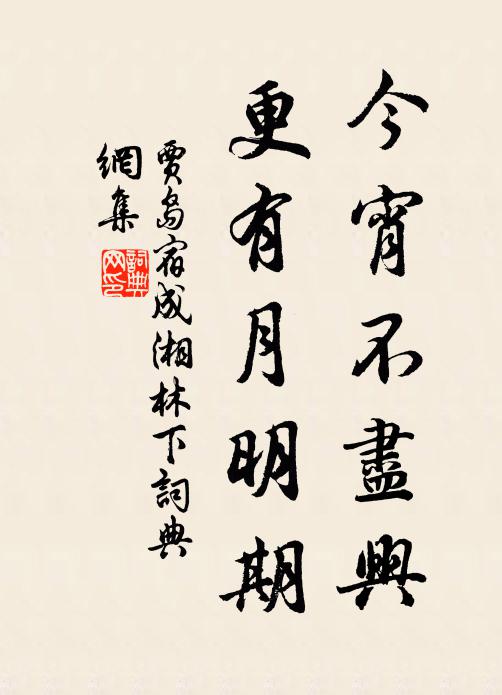 今宵不盡興
更有月明期
賈島宿成湘林下詞典
網集
詞典
网印